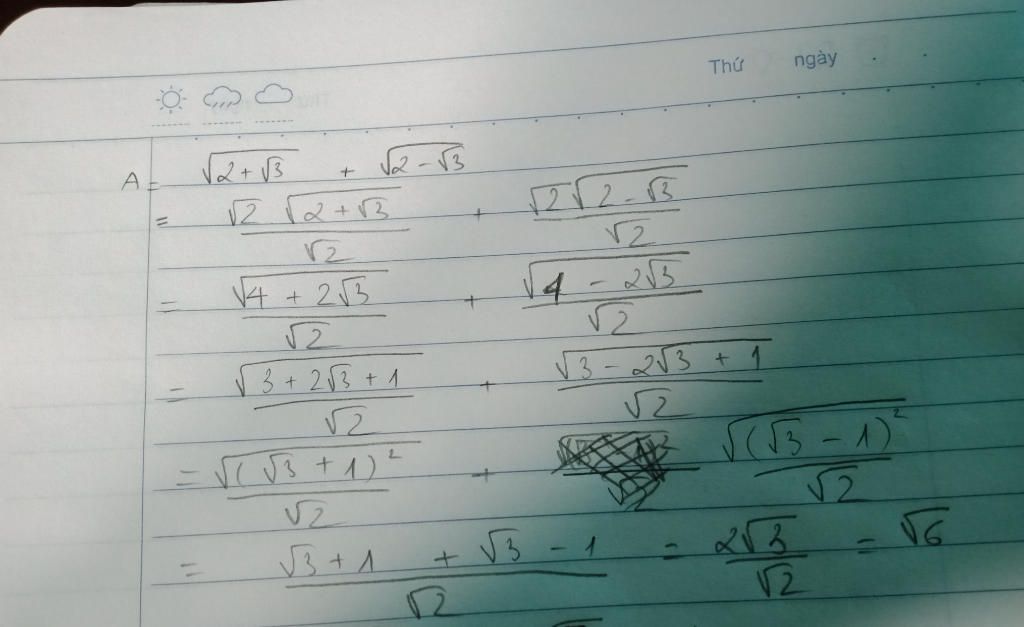 Thứ ngày
A = √(2 + √3) + √(2 - √3)
= (√2 √(2 + √3))/√2 + (√2 √(2 - √3))/√2
= √(4 + 2√3)/√2 + √(4 - 2√3)/√2
= √(3 + 2√3 + 1)/√2 + √(3 - 2√3 + 1)/√2
= √((√3 + 1)²)/√2 + √((√3 - 1)²)/√2
= (√3 + 1 + √3 - 1)/√2 = 2√3/√2 = √6